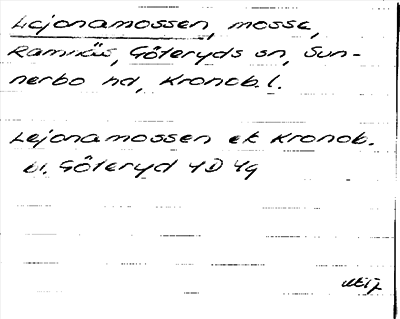 Lejonamossen, mosse,
Ramnäs, Göteryds sn, Sun-
nerbo hd, Kronob. l.
Lejonamossen ek Kronob.
bl. Göteryd 4D 4g